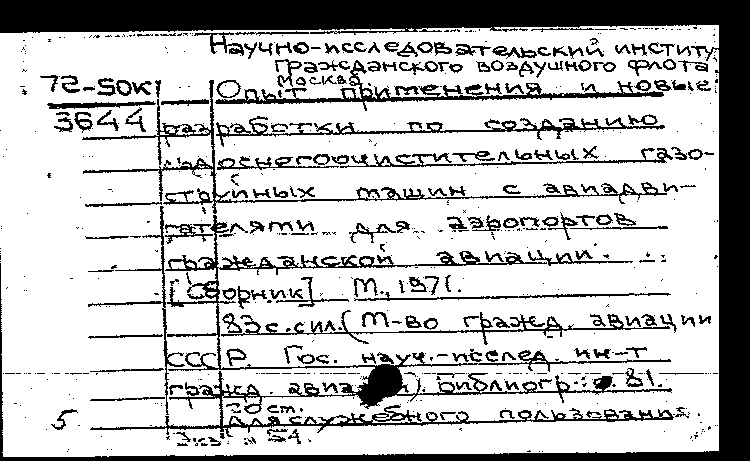 Научно-исследовательский институ
гражданского воздушного флота
Москва
72-50к
Опыт применения и новые
3644
разработки по созданию
льдоснегоочистительных газо-
струйных машин с авиадви-
гателями для аэропортов
гражданской авиации.
[Сборник]. М., 1971.
83с. с ил. (М-во гражд. авиации
СССР. Гос. науч.-исслед. ин-т
гражд. авиа ). Библиогр.: с. 81.
20 см.
5
Для служебного пользования.
Экз. № 54.